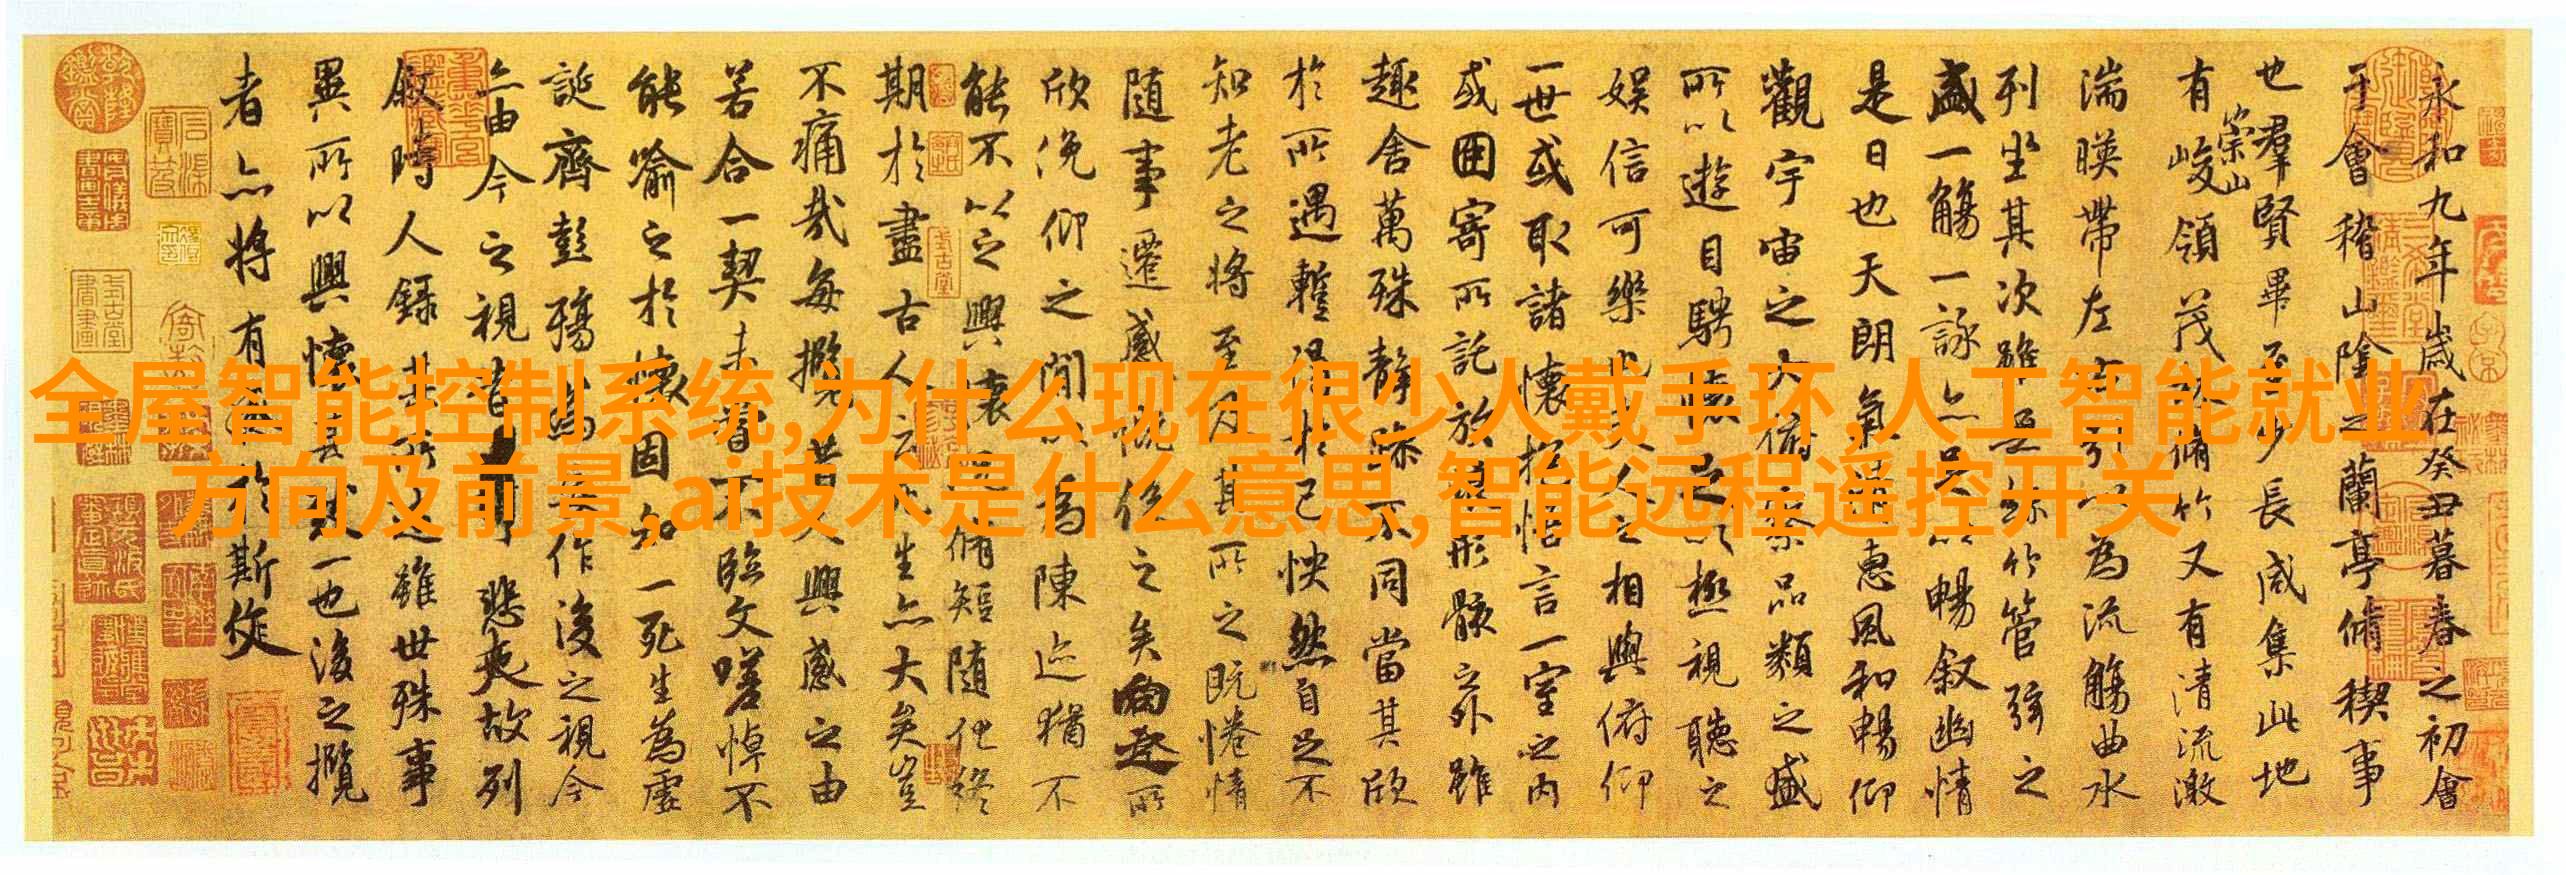 全屋智能控制系统,为什么现在很少人戴手环,人工智能就业
方向及前景,ai技术是什么意思,智能远程遥控开关
永和九年歲在癸丑暮春之初會
于會稽山陰之蘭亭脩稧事
也羣賢畢至少長咸集此地
有崇山峻領茂林脩竹又有清流激
湍暎帶左右引以為流觴曲水
列坐其次雖無絲竹管弦之
盛一觴一詠亦足以暢叙幽情
是日也天朗氣清惠風和暢仰
觀宇宙之大俯察品類之盛
所以遊目騁懷足以極視聽之
娛信可樂也夫人之相與俯仰
一世或取諸懷抱悟言一室之內
或因寄所託放浪形骸之外雖
趣舍萬殊靜躁不同當其欣
於所遇暫得於己怏然自足不
知老之將至及其所之既惓情
隨事遷感慨係之矣向之所
欣俛仰之閒以為陳迹猶不
能不以之興懷況脩短隨化終
期於盡古人云死生亦大矣豈
不痛哉每攬昔人興感之由
若合一契未嘗不臨文嗟悼不
能喻之於懷固知一死生為虛
誕齊彭殤為妄作後之視今
亦由今之視昔悲夫故列
叙時人錄其所述雖世殊事
異所以興懷其致一也後之攬
者亦將有感於斯文